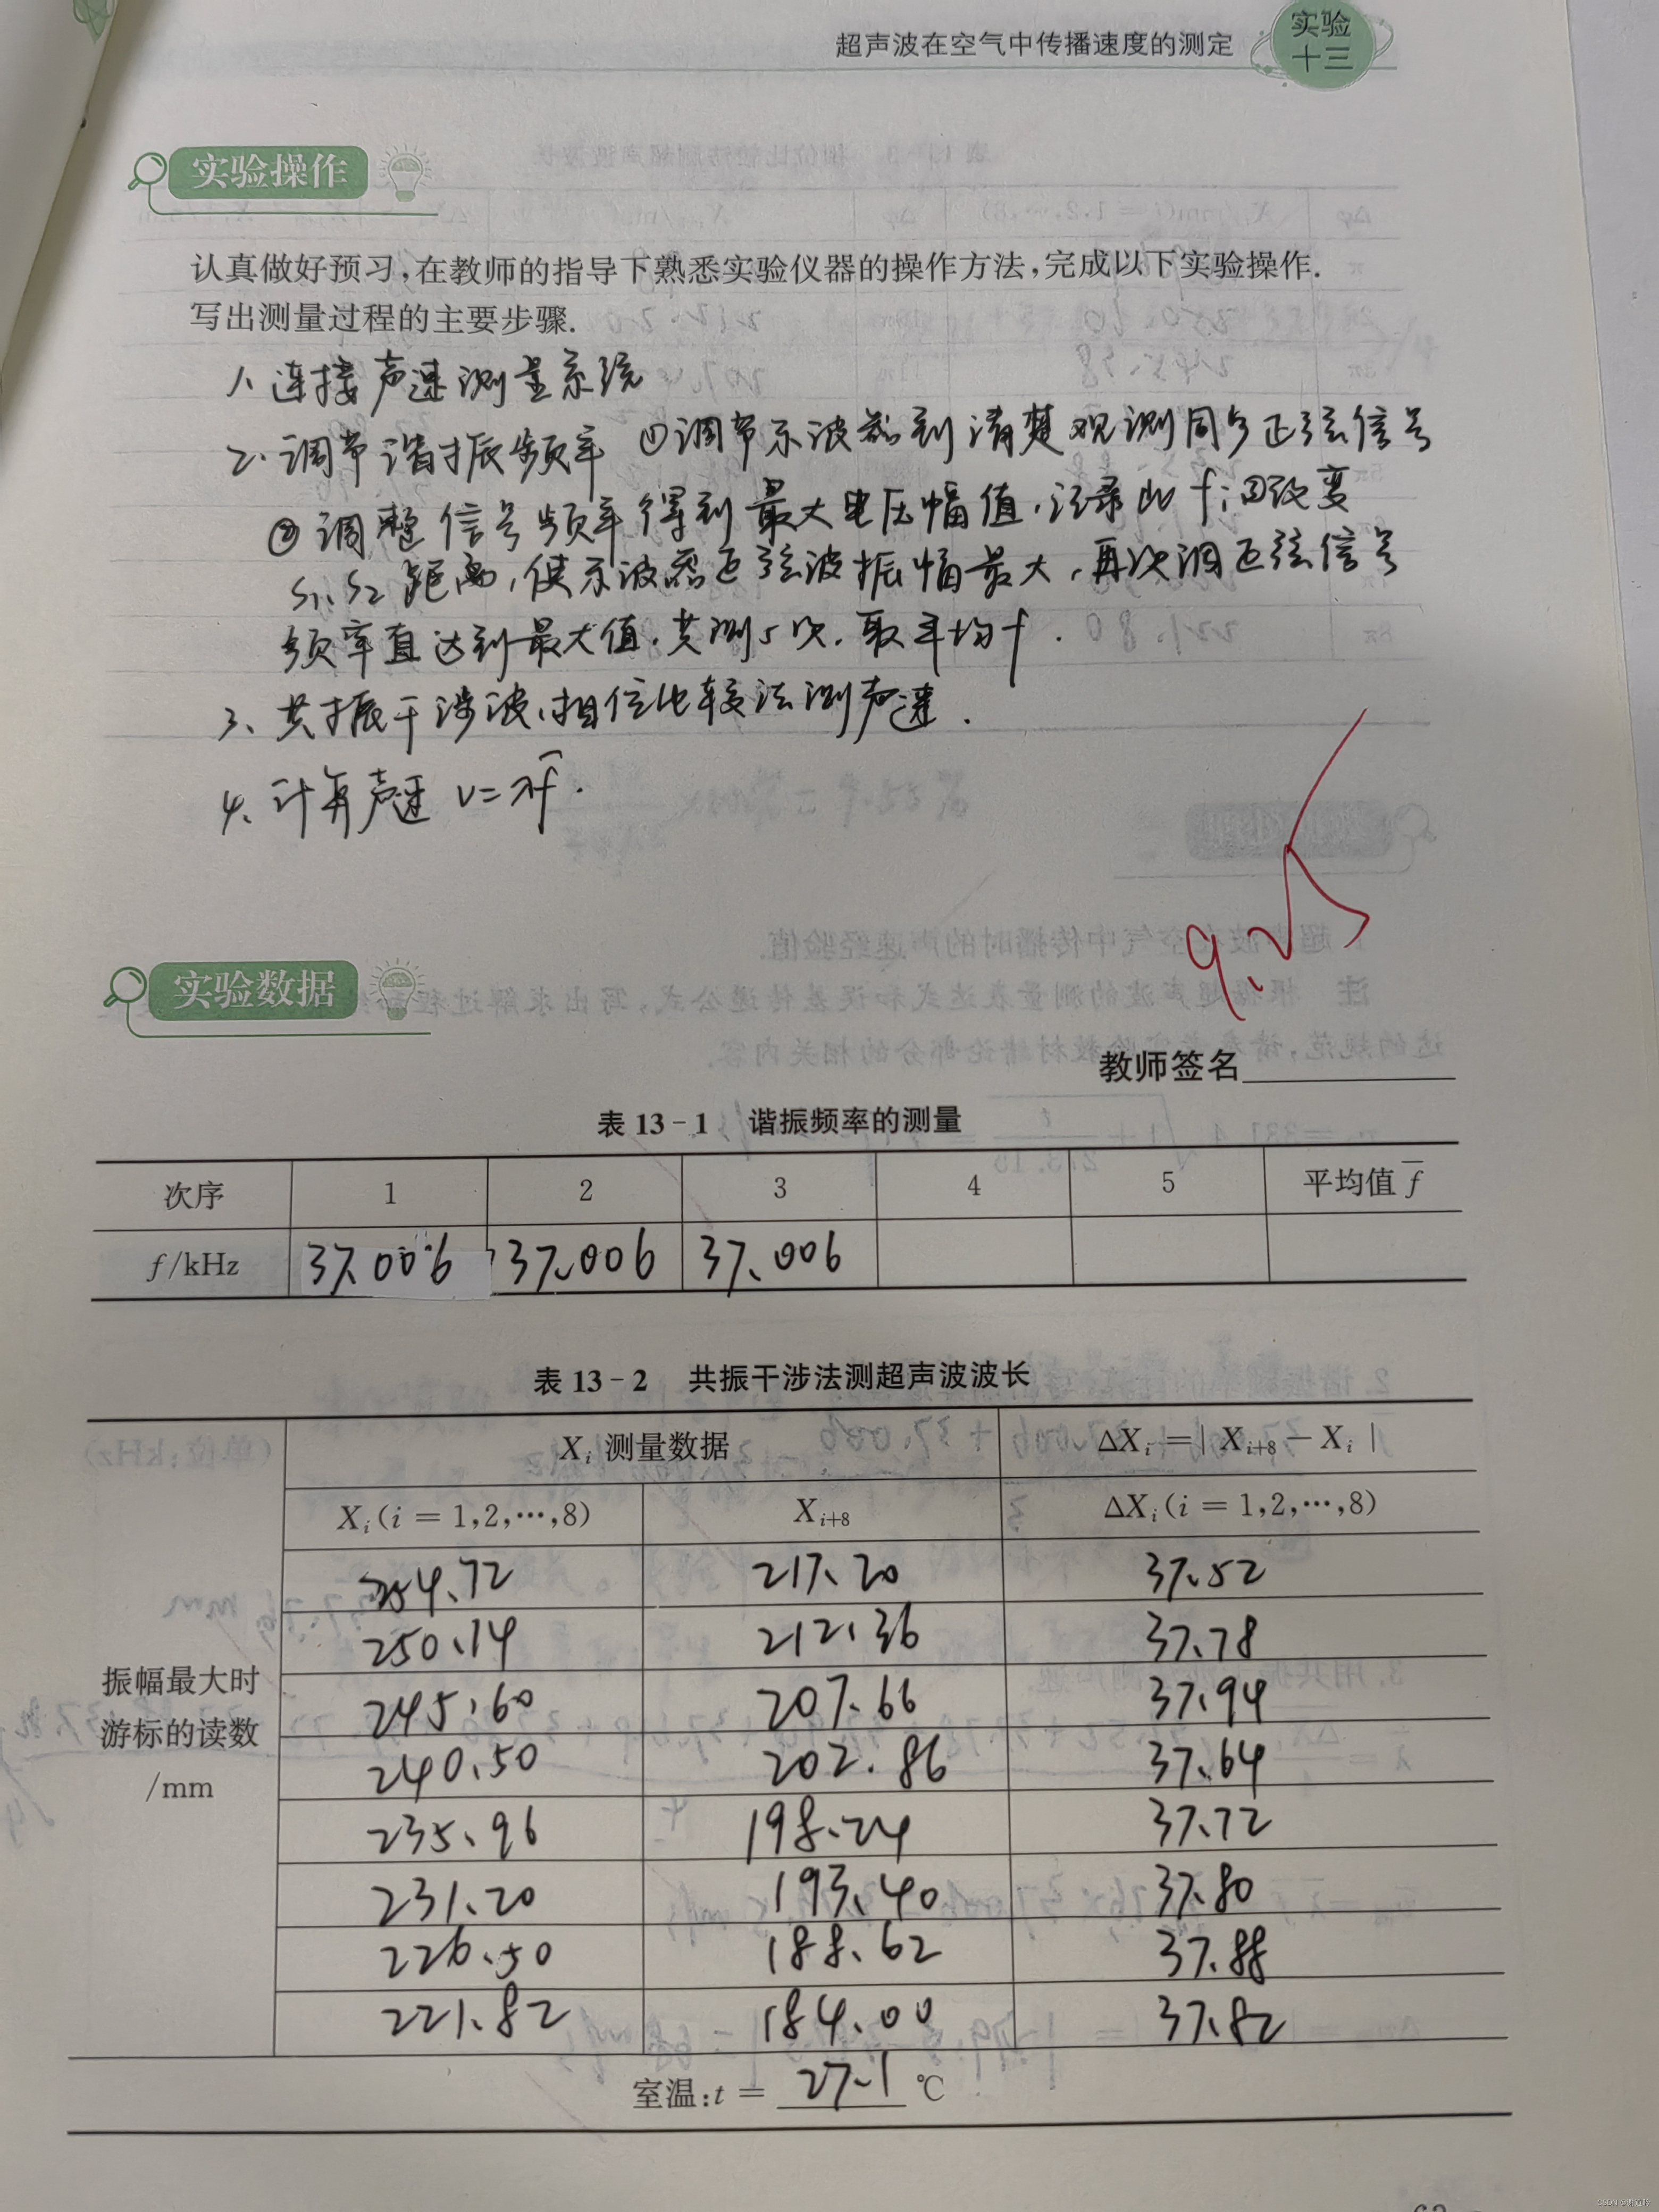 超声波在空气中传播速度的测定
实验
十三
实验操作
认真做好预习,在教师的指导下熟悉实验仪器的操作方法,完成以下实验操作.
写出测量过程的主要步骤.
1、连接声速测量系统
2、调节谐振频率 ①调节示波器到清楚观测同步正弦信号
②调整信号频率得到最大电压幅值,记录此f;③改变
S1、S2距离,使示波器正弦波振幅最大,再次调正弦信号
频率直达到最大值.共测5次.取平均f.
3、共振干涉波、相位比较法测声速.
4、计算声速 v=λf̄.
9.25
实验数据
教师签名
表 13-1 谐振频率的测量
次序 1 2 3 4 5 平均值 f̄
f/kHz 37.006 37.006 37.006
表 13-2 共振干涉法测超声波波长
Xi 测量数据 ΔXi=| Xi+8 − Xi |
Xi(i = 1,2,…,8) Xi+8 ΔXi(i = 1,2,…,8)
254.72 217.20 37.52
250.14 212.36 37.78
245.60 207.66 37.94
240.50 202.86 37.64
235.96 198.24 37.72
231.20 193.40 37.80
226.50 188.62 37.88
221.82 184.00 37.82
振幅最大时
游标的读数
/mm
室温:t = 27.1 ℃